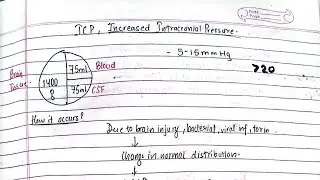 ICP, Increased Intracranial Pressure.
- 5-15 mmHg
>20
75ml Blood
Brain Tissue
1400
8
75ml CSF
How it occurs?
Due to brain injury, bacterial, viral inf, torm
↓
Change in normal distribution.
↓